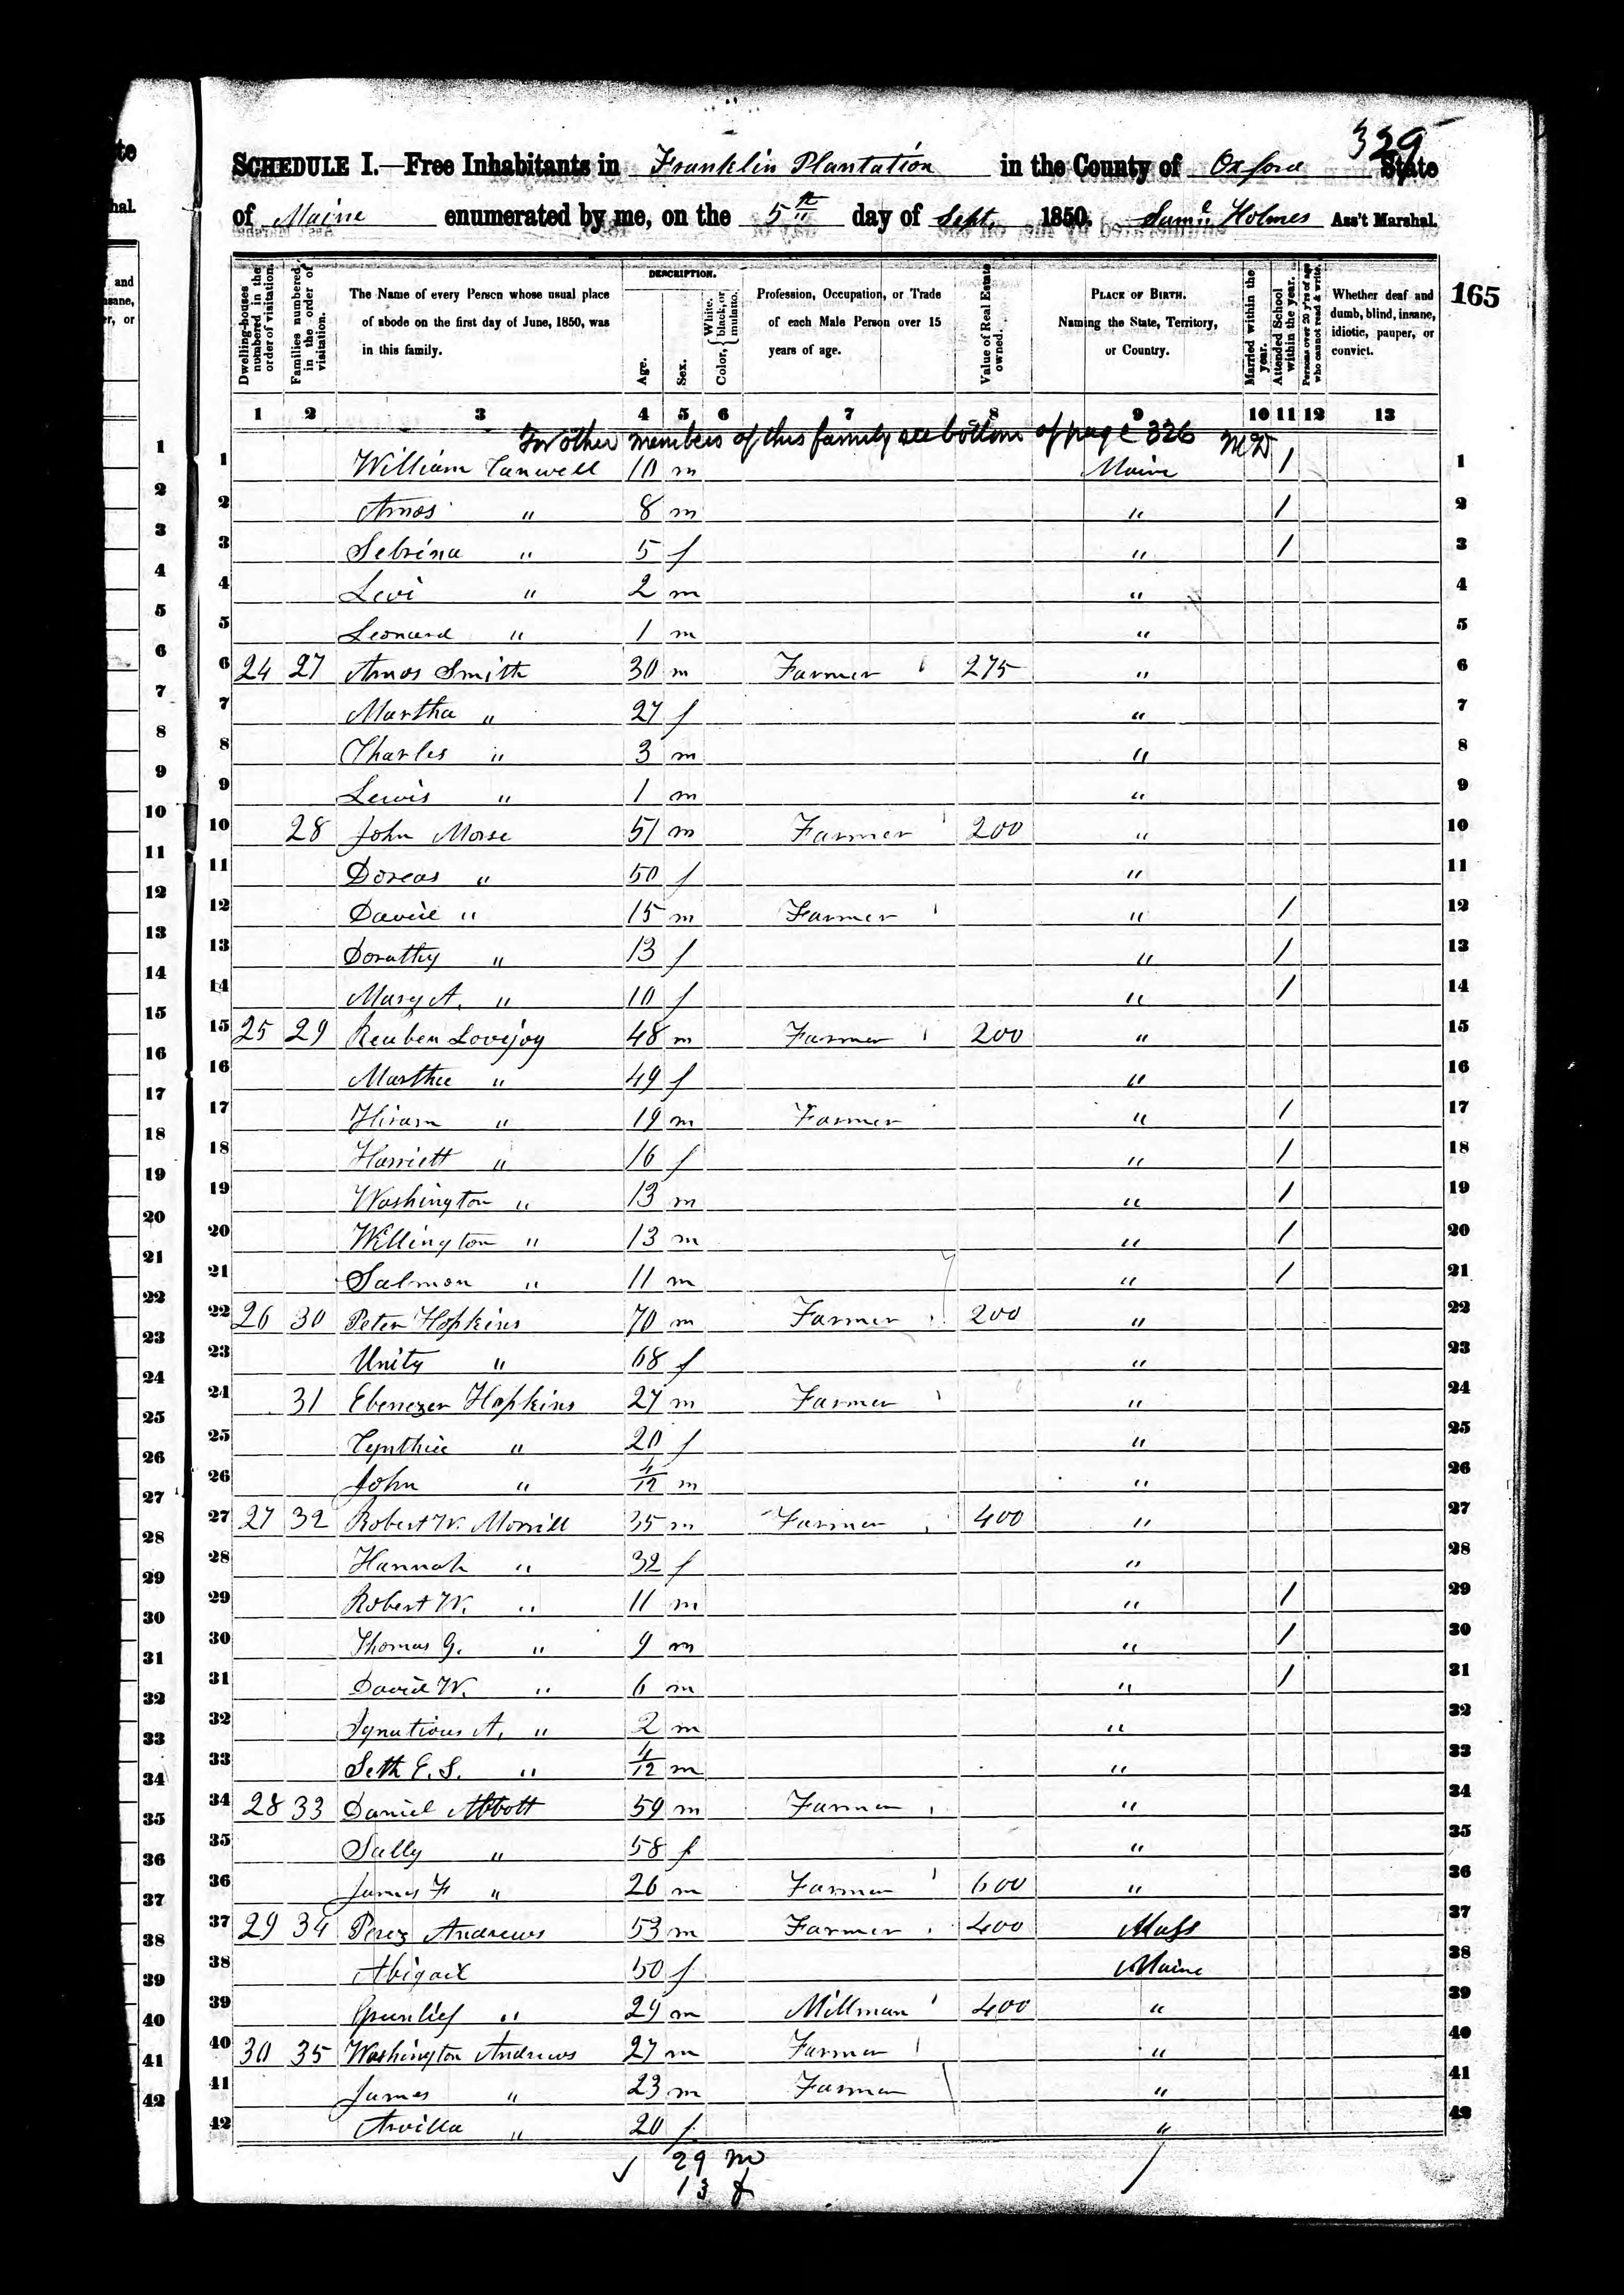 329
SCHEDULE I.—Free Inhabitants in Franklin Plantation in the County of Oxford State
of Maine enumerated by me, on the 5th day of Sept. 1850. Saml Holmes Ass't Marshal.
165
Dwelling-houses numbered in the order of visitation.
Families numbered in the order of visitation.
The Name of every Person whose usual place of abode on the first day of June, 1850, was in this family.
DESCRIPTION.
Age.
Sex.
Color, { White, black, or mulatto.
Profession, Occupation, or Trade of each Male Person over 15 years of age.
Value of Real Estate owned.
PLACE OF BIRTH. Naming the State, Territory, or Country.
Married within the year.
Attended School within the year.
Persons over 20 y'rs of age who cannot read & write.
Whether deaf and dumb, blind, insane, idiotic, pauper, or convict.
1 2 3 4 5 6 7 8 9 10 11 12 13
For other members of this family see bottom of page 326 McD
1 William Canwell 10 m Maine / 1
2 Amos " 8 m " / 2
3 Sebrina " 5 f " / 3
4 Levi " 2 m " 4
5 Leonard " 1 m " 5
6 24 27 Amos Smith 30 m Farmer 275 " 6
7 Martha " 27 f " 7
8 Charles " 3 m " 8
9 Lewis " 1 m " 9
10 28 John Morse 51 m Farmer 200 " 10
11 Dorcas " 50 f " 11
12 David " 15 m Farmer " / 12
13 Dorathy " 13 f " / 13
14 Mary A. " 10 f " / 14
15 25 29 Reuben Lovejoy 48 m Farmer 200 " 15
16 Martha " 49 f " 16
17 Hiram " 19 m Farmer " / 17
18 Harriett " 16 f " / 18
19 Washington " 13 m " / 19
20 Wellington " 13 m " / 20
21 Salmon " 11 m " / 21
22 26 30 Peter Hopkins 70 m Farmer 200 " 22
23 Unity " 68 f " 23
24 31 Ebenezer Hopkins 27 m Farmer " 24
25 Cynthia " 20 f " 25
26 John " 4/12 m " 26
27 27 32 Robert W. Morrill 35 m Farmer 400 " 27
28 Hannah " 32 f " 28
29 Robert W. " 11 m " / 29
30 Thomas G. " 9 m " / 30
31 David W. " 6 m " / 31
32 Ignatious A. " 2 m " 32
33 Seth E. S. " 4/12 m " 33
34 28 33 Daniel Abbott 59 m Farmer " 34
35 Sally " 58 f " 35
36 James F " 26 m Farmer 600 " 36
37 29 34 Perez Andrews 53 m Farmer 400 Mass 37
38 Abigail 50 f Maine 38
39 Greenlief " 29 m Millman 400 " 39
40 30 35 Washington Andrews 27 m Farmer " 40
41 James " 23 m Farmer " 41
42 Arvilla " 20 f " 42
29 m
13 f